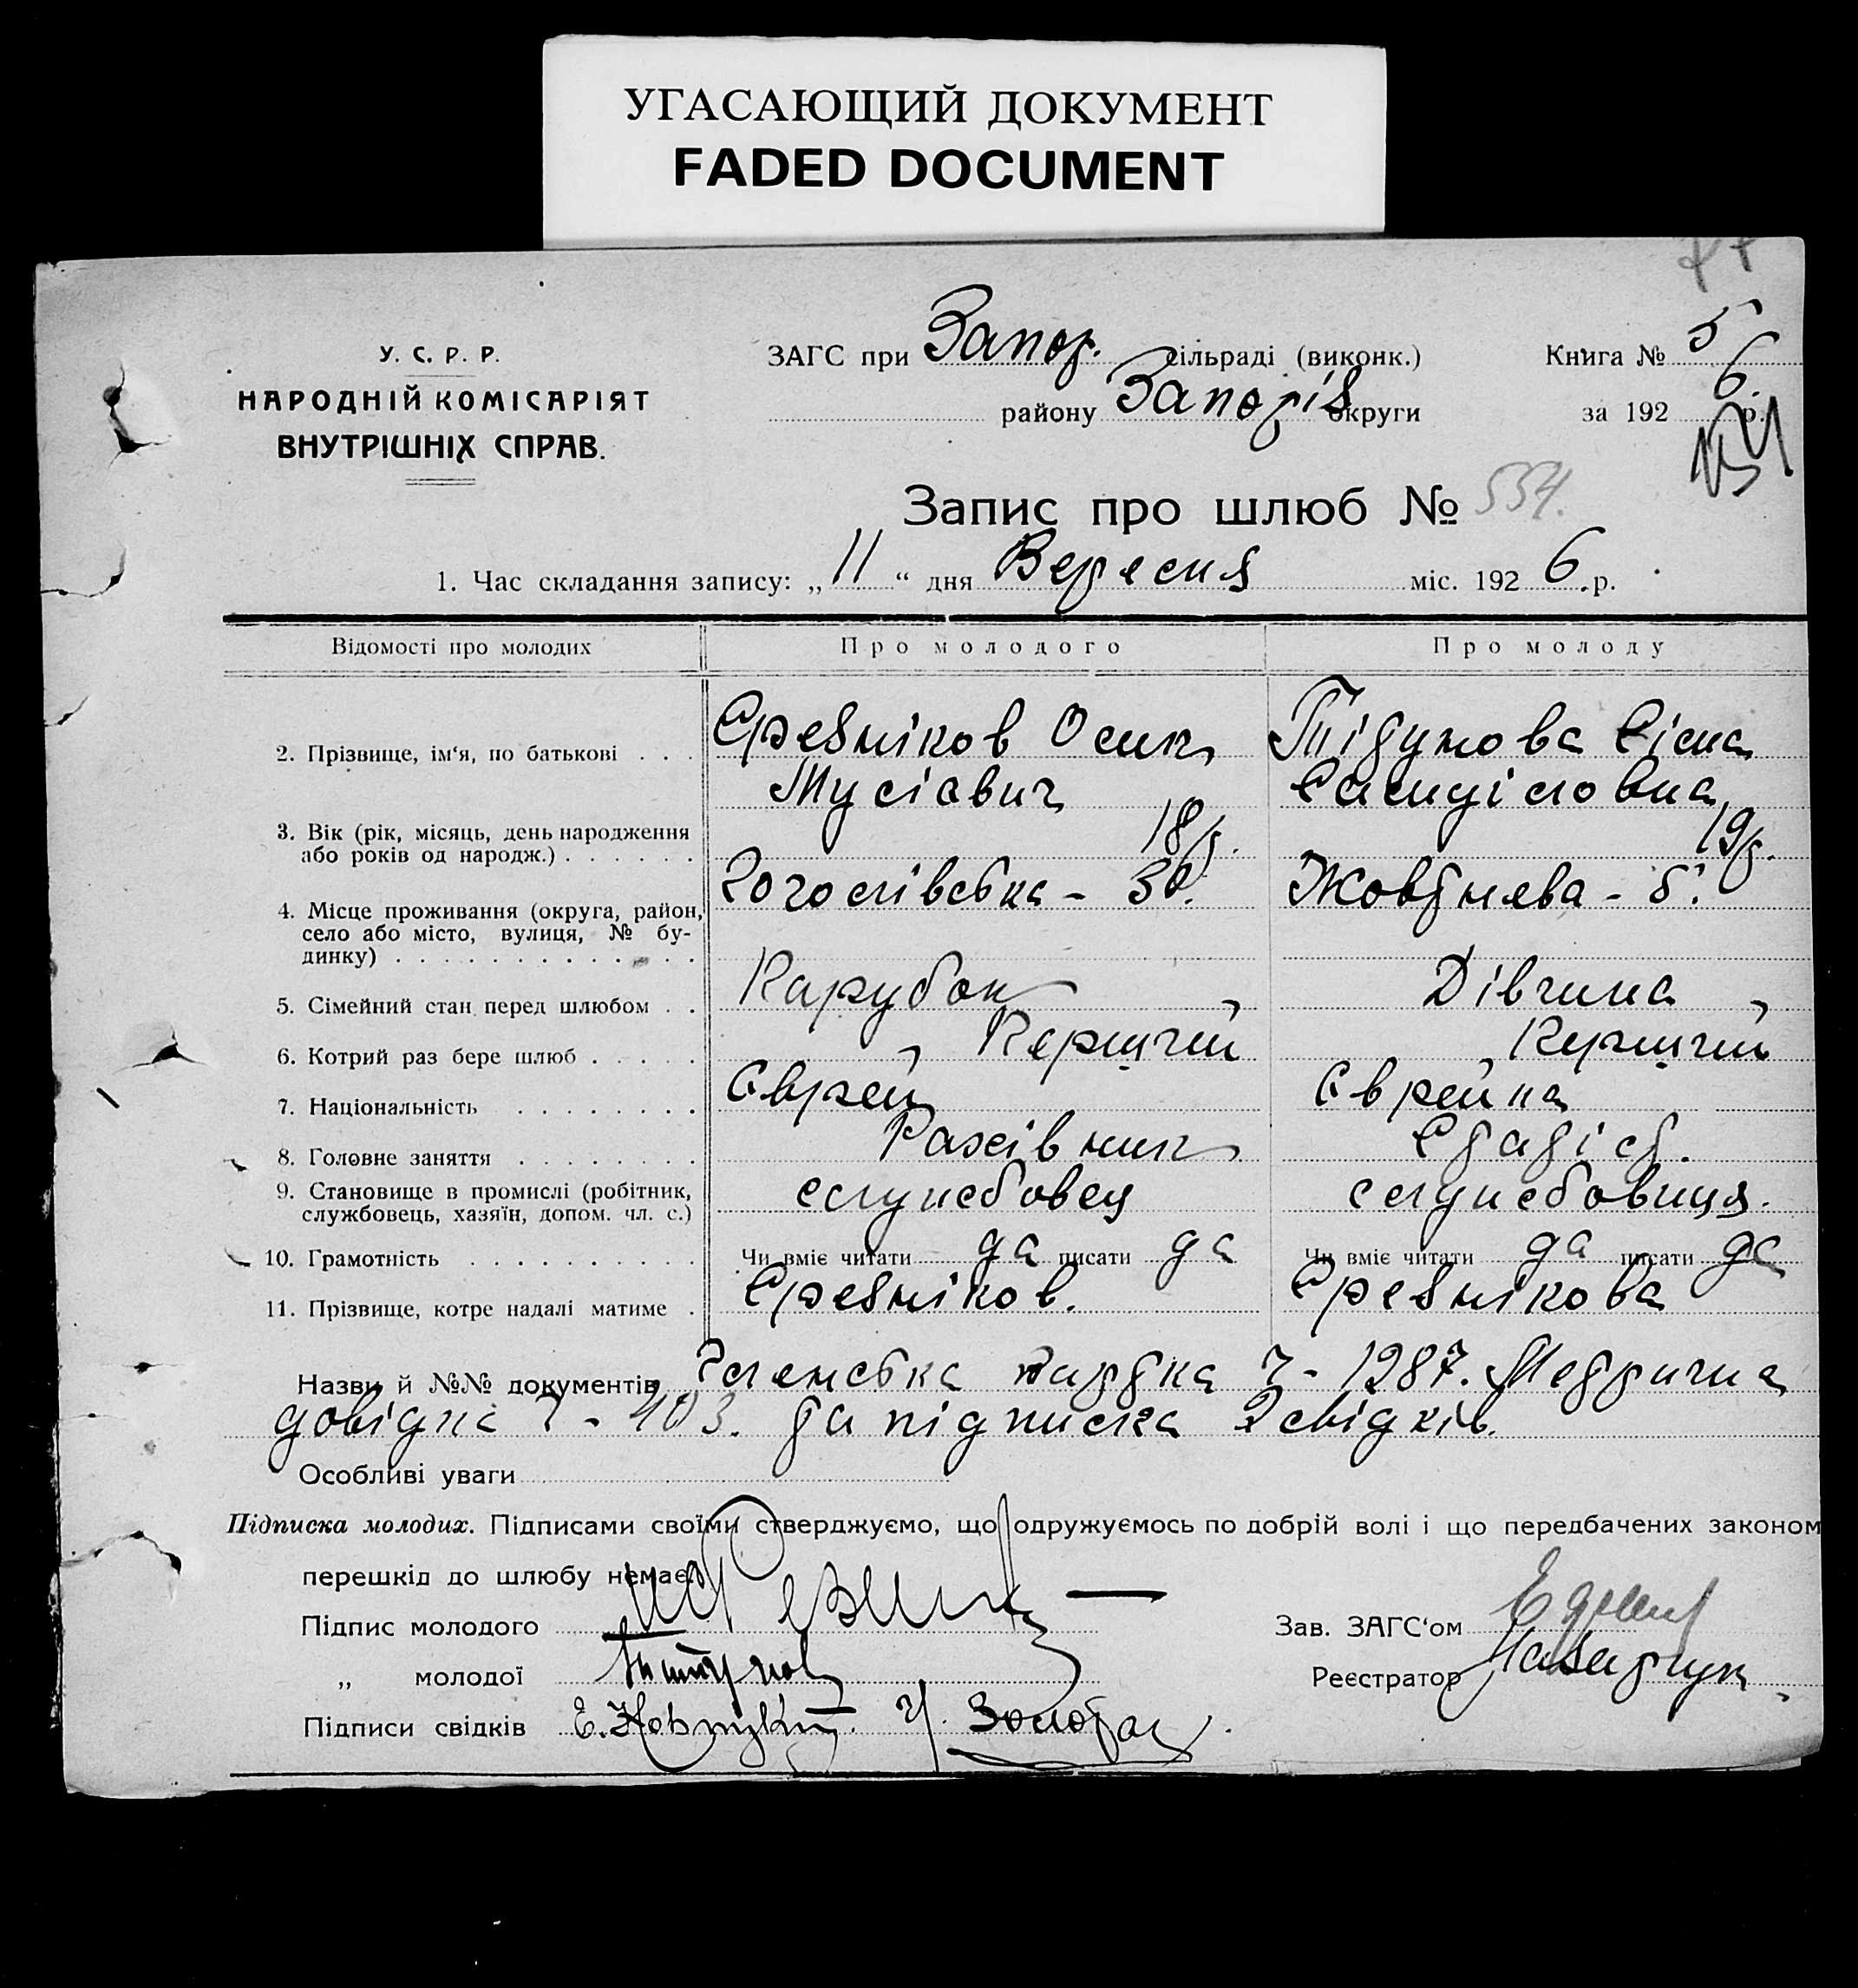 УГАСАЮЩИЙ ДОКУМЕНТ
FADED DOCUMENT
У. С. Р. Р.
НАРОДНІЙ КОМІСАРІЯТ
ВНУТРІШНІХ СПРАВ.
ЗАГС при Запор. сільраді (виконк.)
району Запоріз округи
Книга № 5
за 1926. р.
Запис про шлюб № 554.
1. Час складання запису: „11“ дня Вересня міс. 1926.р.
Відомості про молодих Про молодого Про молоду
2. Прізвище, ім‘я, по батькові . . . Срезніков Осип
Мусієвич
3. Вік (рік, місяць, день народження
або років од народж.) . . . . . . 18 р. 19 р.
4. Місце проживання (округа, район,
село або місто, вулиця, № бу-
динку) . . . . . . . . . . . . Гоголівська - 36. Жовтнева - 5.
5. Сімейний стан перед шлюбом . . Парубок, Дівчина,
6. Котрий раз бере шлюб . . . . . Перший Перший
7. Національність . . . . . . . . Єврей Єврейка
8. Головне заняття . . . . . . . . Рахівник Статіст.
9. Становище в промислі (робітник,
службовець, хазяїн, допом. чл. с.) службовец службовиця.
10. Грамотність . . . . . . . . . . Чи вміє читати да писати да Чи вміє читати да писати да
11. Прізвище, котре надалі матиме . Срезніков. Срезнікова
Назви й №№ документів Членська картка ч - 1987. Метрична
довідка ч - 403. та підписка 2 свідків.
Особливі уваги
Підписка молодих. Підписами своїми стверджуємо, що одружуємось по добрій волі і що передбачених законом
перешкід до шлюбу немає.
Підпис молодого
„ молодої
Підписи свідків
Зав. ЗАГС‘ом
Реєстратор Назарчук